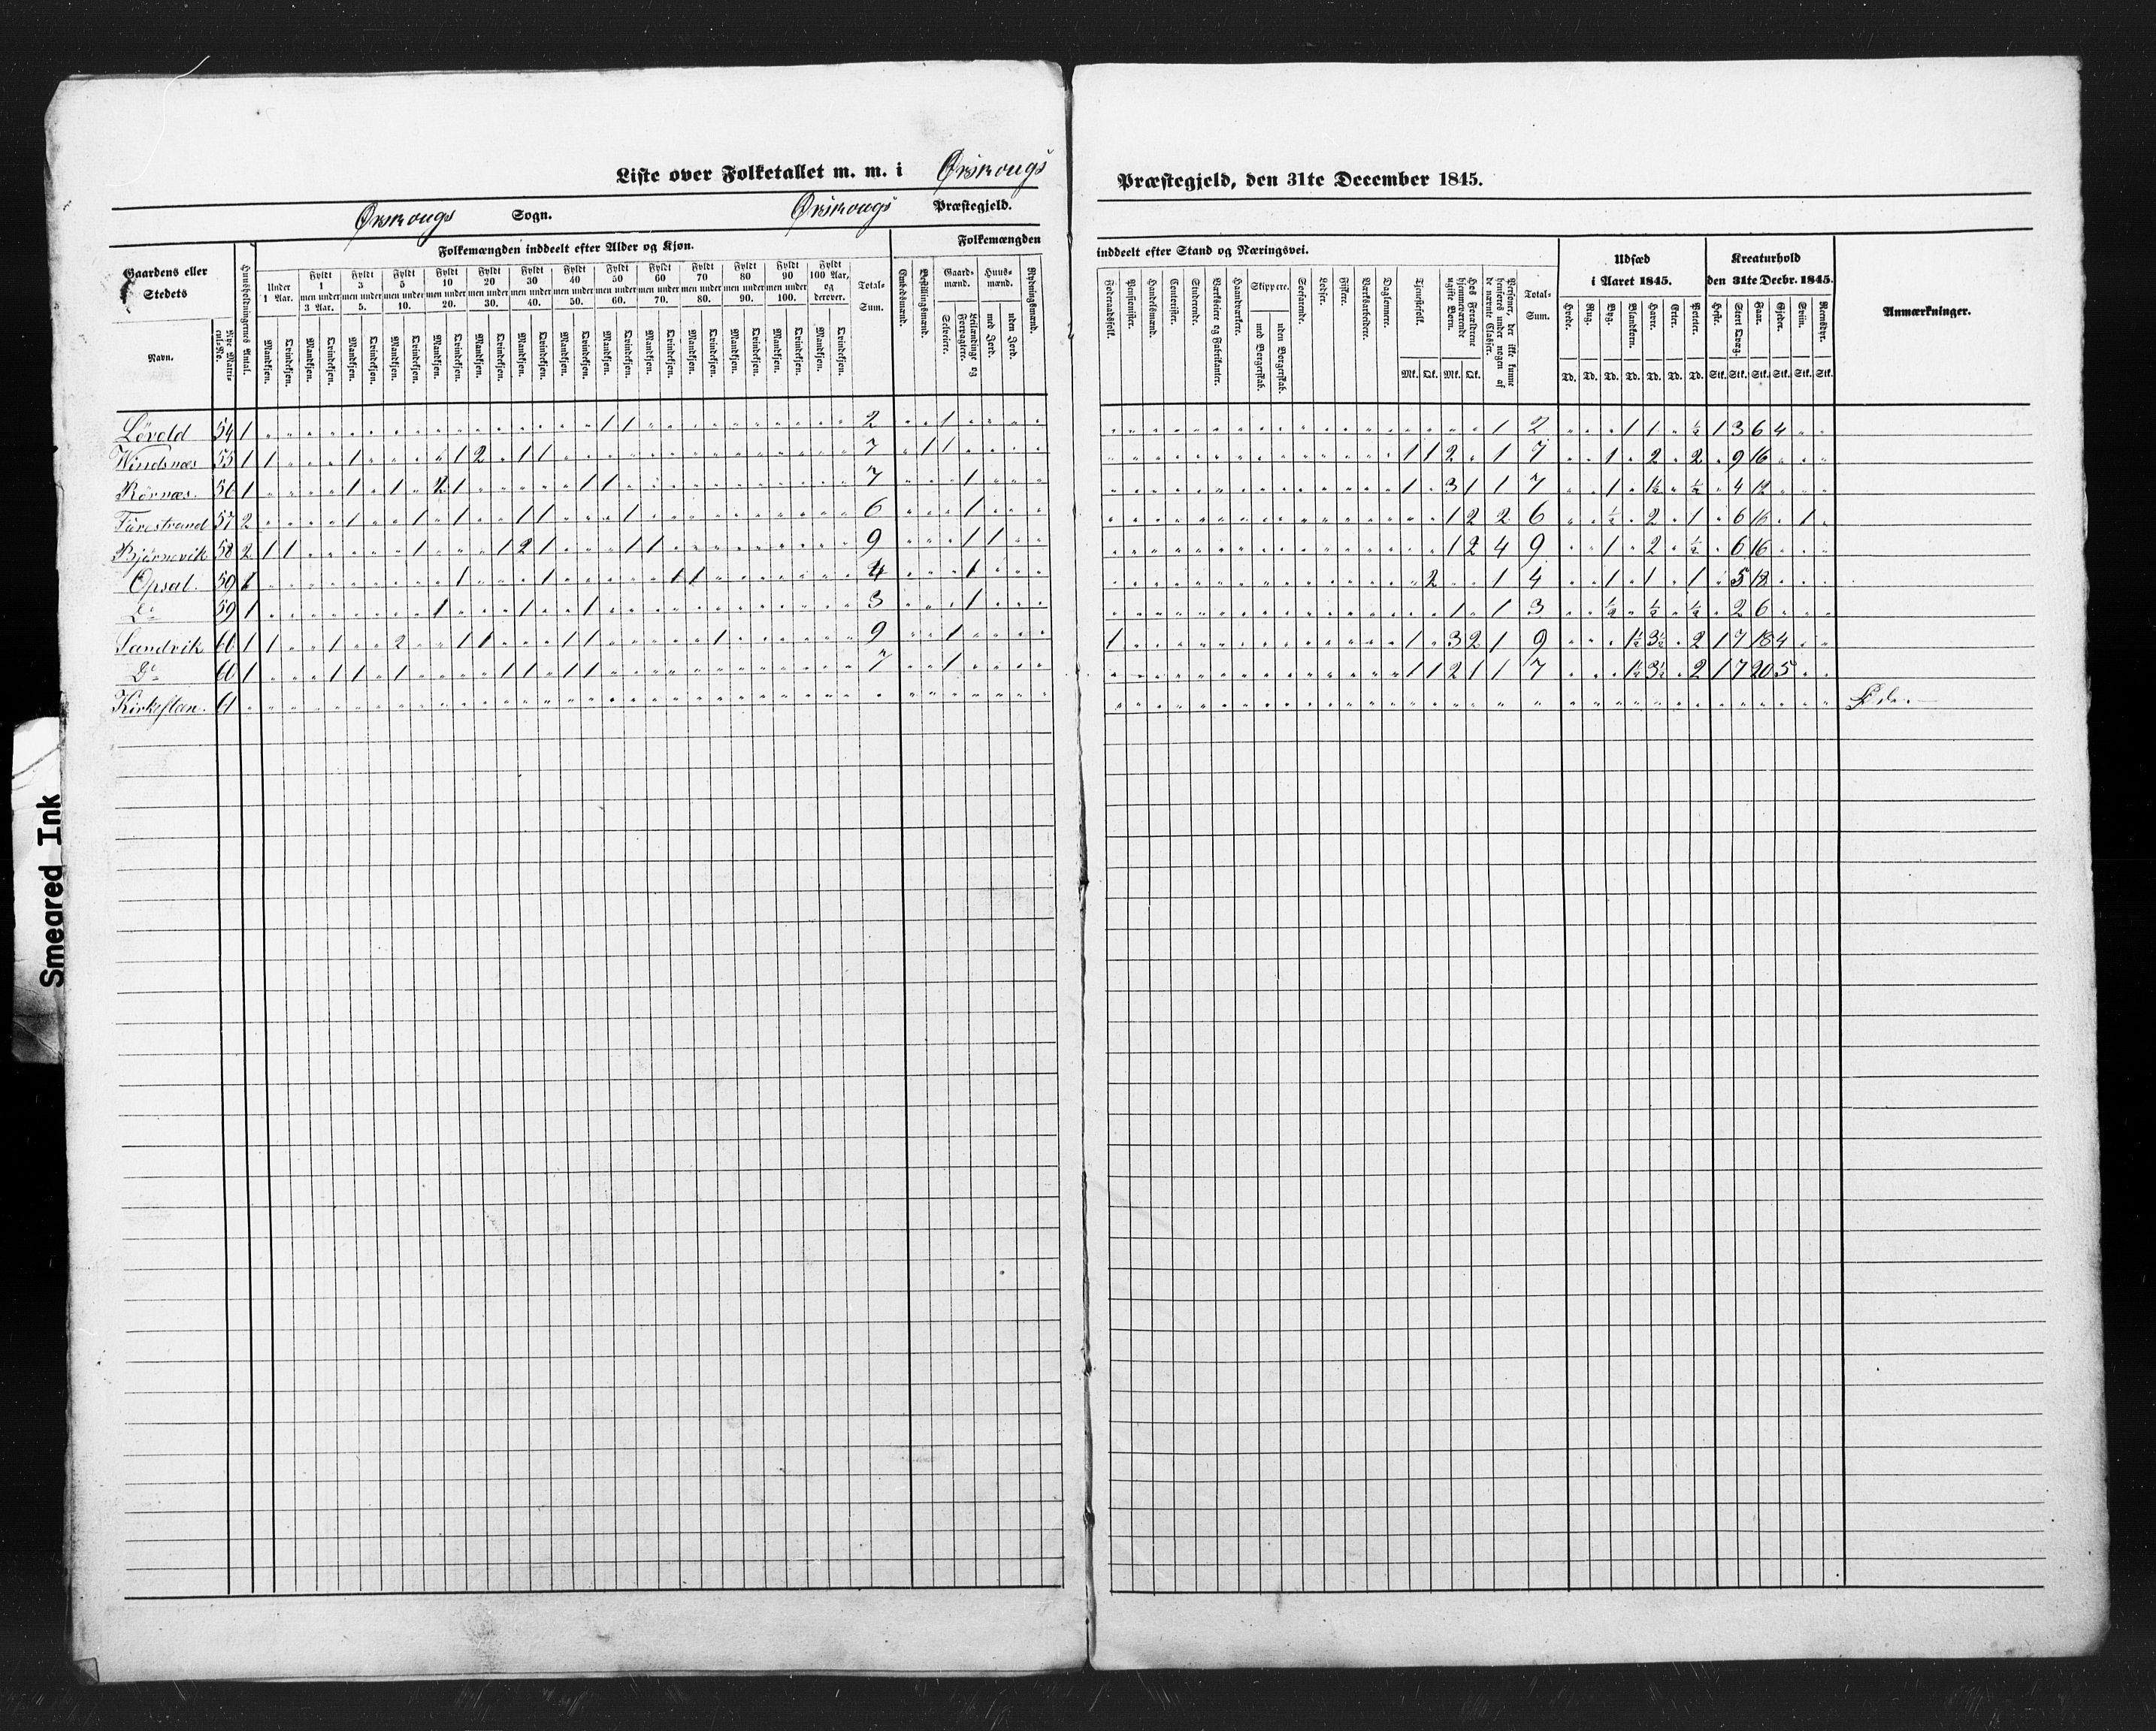 Liste over Folketallet m. m. i Ørskougs Præstegjeld, den 31te December 1845.
Ørskougs Sogn. Ørskougs Præstegjeld.
Gaardens eller Stedets Navn.
Nye Matricul-No.
Huusholdningernes Antal.
Folkemængden inddeelt efter Alder og Kjøn.
Under 1 Aar.
Fyldt 1 men under 3 Aar.
Fyldt 3 men under 5.
Fyldt 5 men under 10.
Fyldt 10 men under 20.
Fyldt 20 men under 30.
Fyldt 30 men under 40.
Fyldt 40 men under 50.
Fyldt 50 men under 60.
Fyldt 60 men under 70.
Fyldt 70 men under 80.
Fyldt 80 men under 90.
Fyldt 90 men under 100.
Fyldt 100 Aar, og derover.
Mandkjøn. Qvindekjøn. Mandkjøn. Qvindekjøn. Mandkjøn. Qvindekjøn. Mandkjøn. Qvindekjøn. Mandkjøn. Qvindekjøn. Mandkjøn. Qvindekjøn. Mandkjøn. Qvindekjøn. Mandkjøn. Qvindekjøn. Mandkjøn. Qvindekjøn. Mandkjøn. Qvindekjøn. Mandkjøn. Qvindekjøn. Mandkjøn. Qvindekjøn. Mandkjøn. Qvindekjøn. Mandkjøn. Qvindekjøn.
Total-Sum.
Folkemængden inddeelt efter Stand og Næringsvei.
Embedsmænd.
Bestillingsmænd.
Gaardmænd.
Selveiere.
Leilændinge og Forpagtere.
Huusmænd.
med Jord.
uden Jord.
Rydningsmænd.
Føderaadsfolk.
Pensionister.
Handelsmænd.
Contorister.
Studerende.
Værkseiere og Fabrikanter.
Haandværkere.
Skippere.
med Borgerskab.
uden Borgerskab.
Søefarende.
Lodser.
Fiskere.
Værksarbeidere.
Daglønnere.
Tjenestefolk.
Mk. Qk.
Hos Forældrene hjemmeværende ugifte Børn.
Mk. Qk.
Personer, der ikke kunne henføres under nogen af de nævnte Classer.
Total-Sum.
Udsæd i Aaret 1845.
Hvede. Rug. Byg. Blandkorn. Havre. Erter. Poteter.
Td. Td. Td. Td. Td. Td. Td.
Kreaturhold den 31te Decbr. 1845.
Heste. Stort Qvæg. Faar. Gjeder. Sviin. Rensdyr.
Stk. Stk. Stk. Stk. Stk. Stk.
Anmærkninger.
Lövold 54 1 1 1 2 1 1 2 1 1 ½ 1 3 6 4
Windsnæs 55 1 1 1 1 2 1 1 7 1 1 1 1 2 1 7 1 2 2 9 16
56 1 1 1 2 1 1 1 7 1 1 3 1 1 7 1 1½ ½ 4 12
57 2 1 1 1 1 1 1 6 1 1 2 2 6 ½ 2 1 6 1
Björnevik 58 2 1 1 1 1 2 1 1 1 9 1 1 1 2 4 9 1 2 ½ 6 16
Opsal 59 1 1 1 1 1 4 1 2 1 4 1 1 1 5
Do 59 1 1 1 1 3 1 1 1 3 ½ ½ ½ 2 6
Sandvik 60 1 1 1 2 1 1 1 1 1 9 1 1 1 3 2 1 9 1½ 3½ 2 1 7 18 4
Do 60 1 1 1 1 1 1 1 1 7 1 1 1 2 1 1 7 1½ 3½ 2 1 7 20 5
61
Smeared Ink